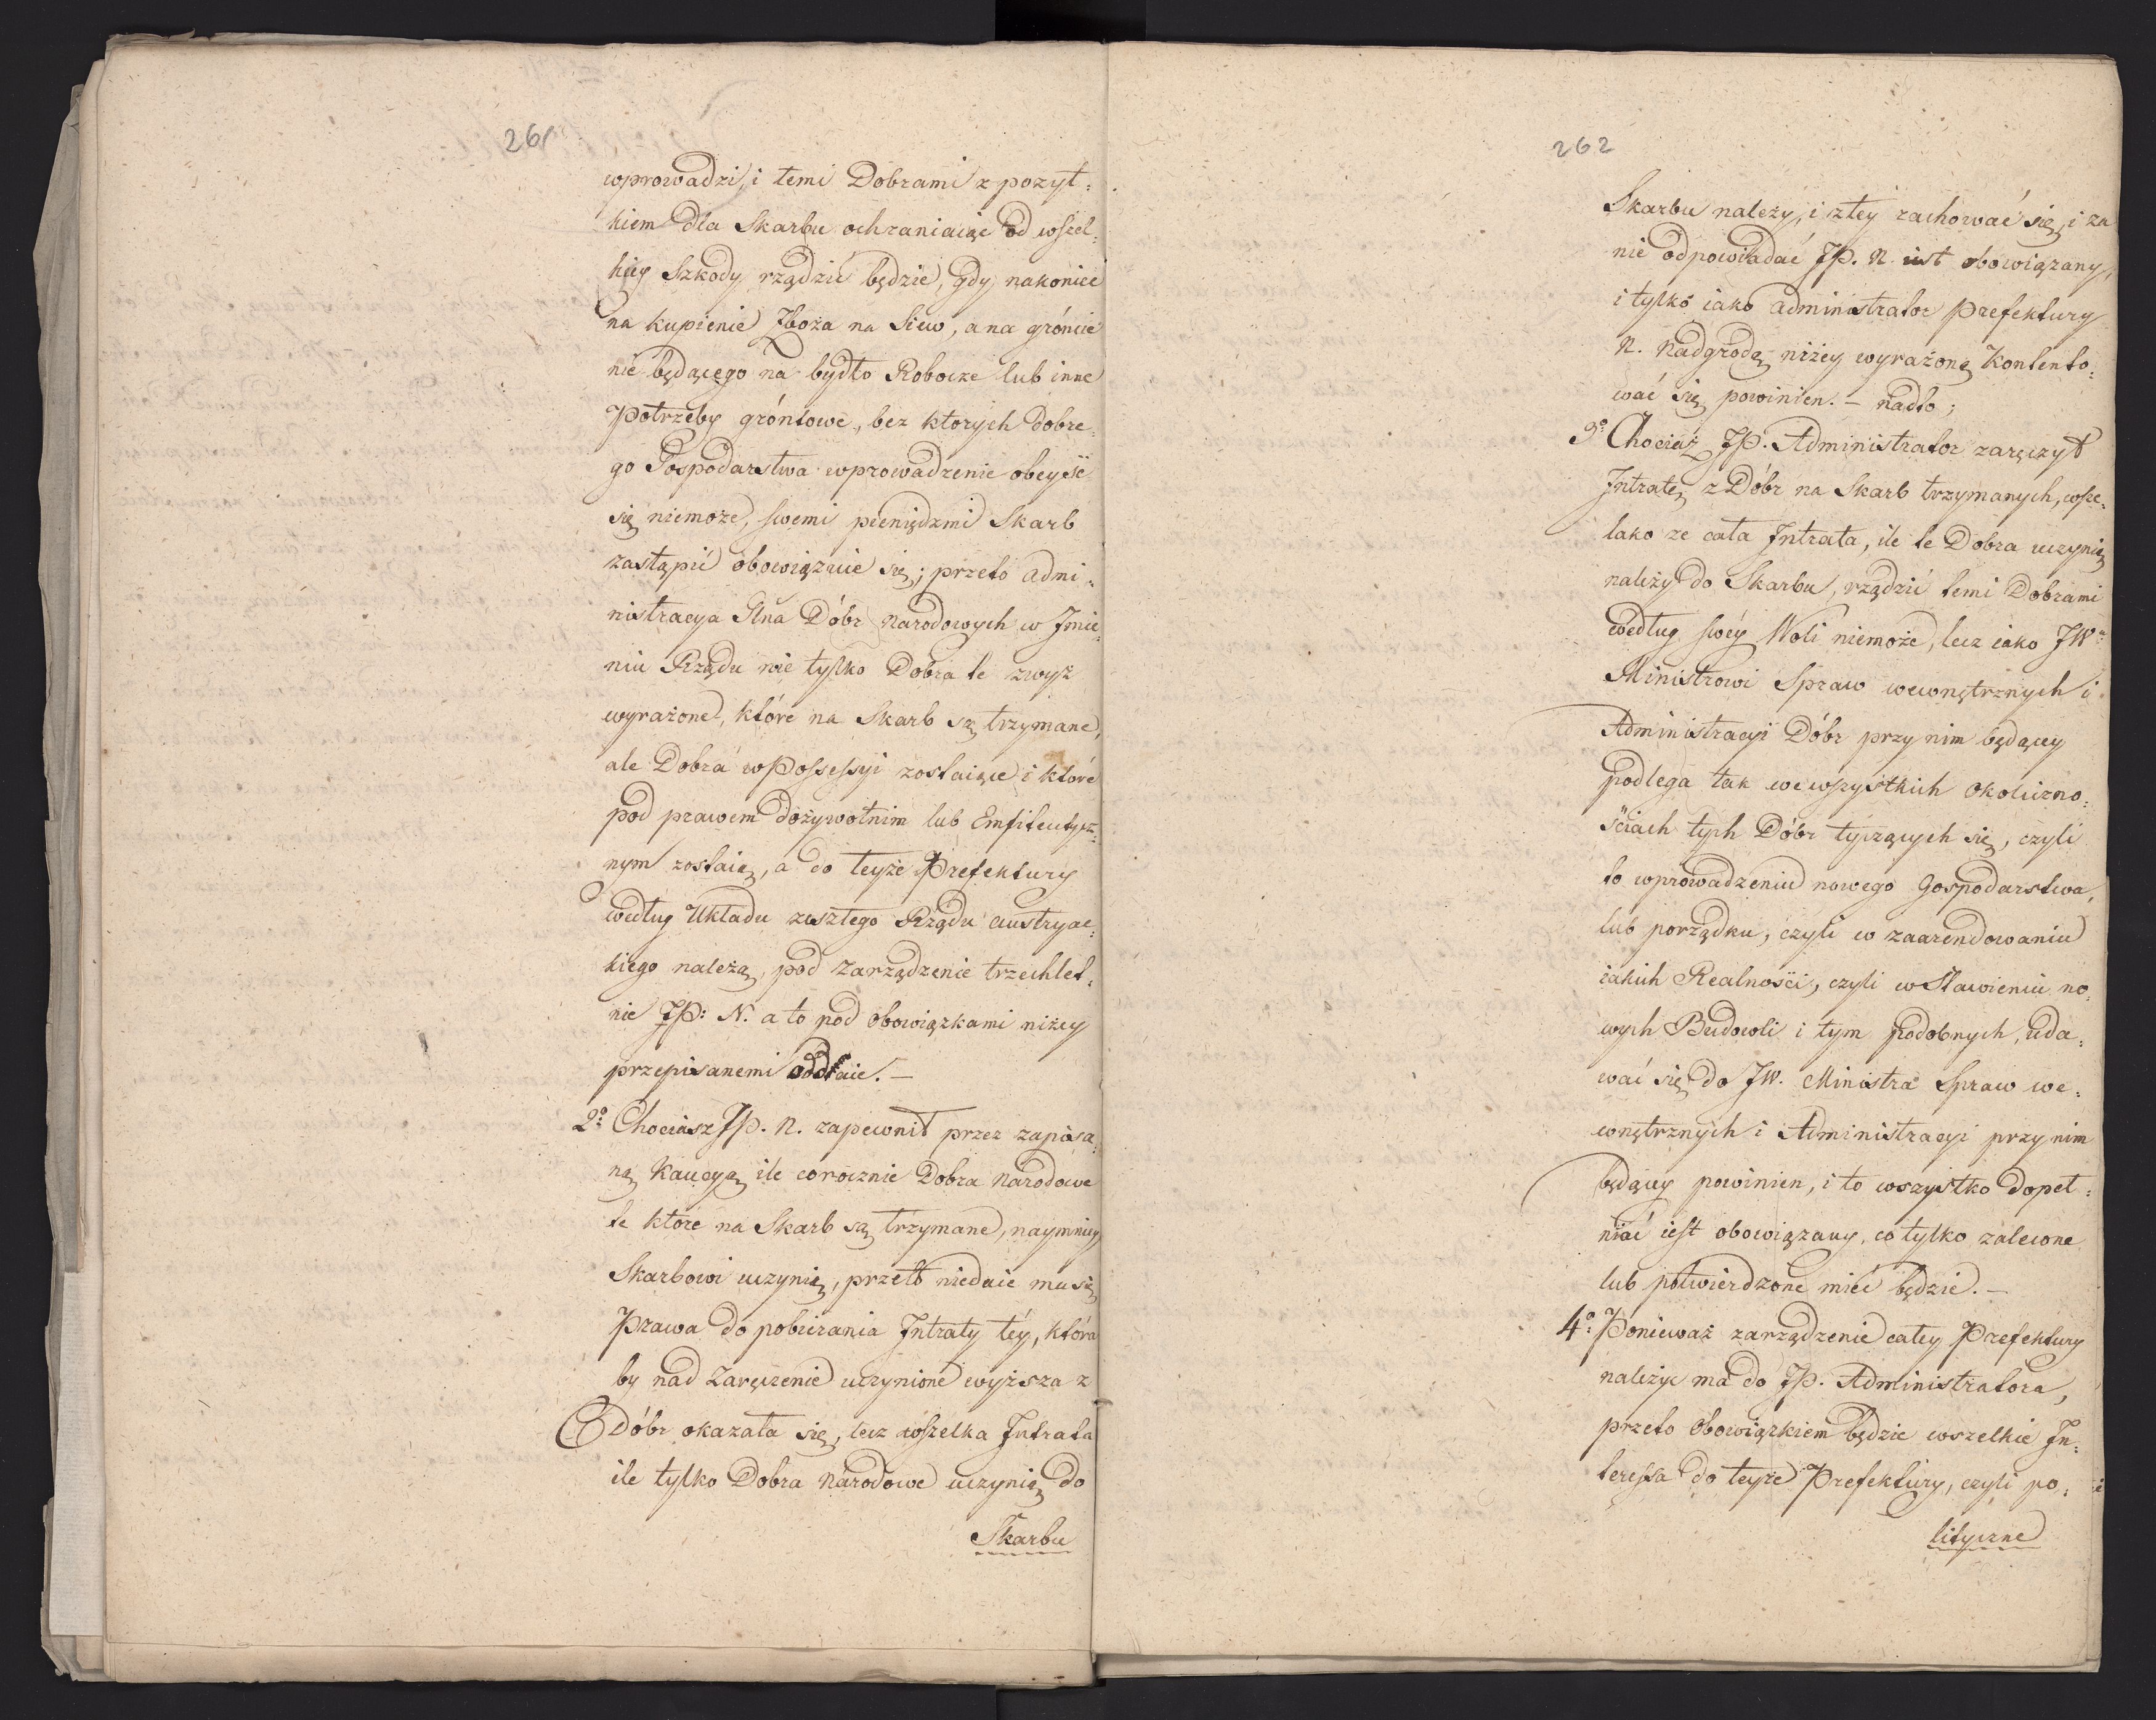 261
wprowadzi, i temi Dobrami z pozyt:
kiem dla Skarbu ochraniaiąc od wszel:
kiey Szkody rządzić będzie, gdy nakoniec
na kupienie Zboża na Siew, a na gróncie
nie będącego na bydło Robocze lub inne
Potrzeby gróntowe, bez ktorych Dobre:
go Gospodarstwa wprowadzenie obeyść
się niemoże, swemi pieniędzmi Skarb
zastąpić obowiązuie się; przeto Admi:
nistracya Glna Dóbr Narodowych w Jmie:
niu Rządu nie tylko Dobra te zwyż
wyrażone, które na Skarb są trzymane,
ale Dobra w Possessyi zostaiące i które
pod prawem dożywotnim lub Emfiteutycz:
nym zostaią, a do teyże Prefektury
według Układu zeszłego Rządu Austryac:
kiego należą, pod Zarządzenie trzechlet:
nie JP: N. a to pod obowiązkami niżey
przepisanemi oddaie. —
2o: Chociasz JP. N. zapewnił przez zapisa:
ną Kaucyą ile corocznie Dobra Narodowe
te które na Skarb są trzymane, naymniey
Skarbowi uczynią, przeto niedaie mu się
Prawa do pobierania Jntraty téy, która
by nad Zaręczenie uczynione wyższa z
Dóbr okazała się, lecz wszelka Jntrata
ile tylko Dobra Narodowe uczynią do
Skarbu
262
Skarbu należy, i z tey zachować się, i za
nie odpowiadać JP. N. iest obowiązany,
i tylko iako Administrator Prefektury
N. Nadgrodą niżey wyrażoną Kontento:
wać się powinien. — Nadto;
3o: Chociaż JP. Administrator zaręczył
Jntratę z Dóbr na Skarb trzymanych, wsze:
lako ze cała Jntrata, ile te Dobra uczynią
należy do Skarbu, rządzić temi Dobrami
według swéy Woli niemoże, lecz iako JW.
Ministrowi Spraw wewnętrznych i
Administracyi Dóbr przy nim będącey
podlega tak we wszystkich okoliczno:
ściach tych Dóbr tyczących się, czyli
to wprowadzeniu nowego Gospodarstwa,
lub porządku, czyli w zaarendowaniu
iakich Realności, czyli w Stawieniu no:
wych Budowli i tym podobnych, uda:
wać się do JW. Ministra Spraw we:
wnętrznych i Administracyi przy nim
będącey powinien, i to wszystko dopeł:
niać iest obowiązany, co tylko zalecone
lub potwierdzone mieć będzie. —
4o: Ponieważ zarządzenie całey Prefektury
należyc ma do JP. Administratora,
przeto Obowiązkiem będzie wszelkie Jn:
teressa do teyże Prefektury, czyli po:
lityczne